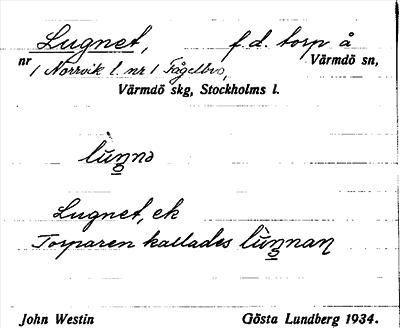 Lugnet, f.d. torp å
nr 1 Norrvik l. nr 1 Fågelbro, Värmdö sn,
Värmdö skg, Stockholms l.
lùŋnə
Lugnet, ek
Torparen kallades lùŋnan
John Westin Gösta Lundberg 1934.